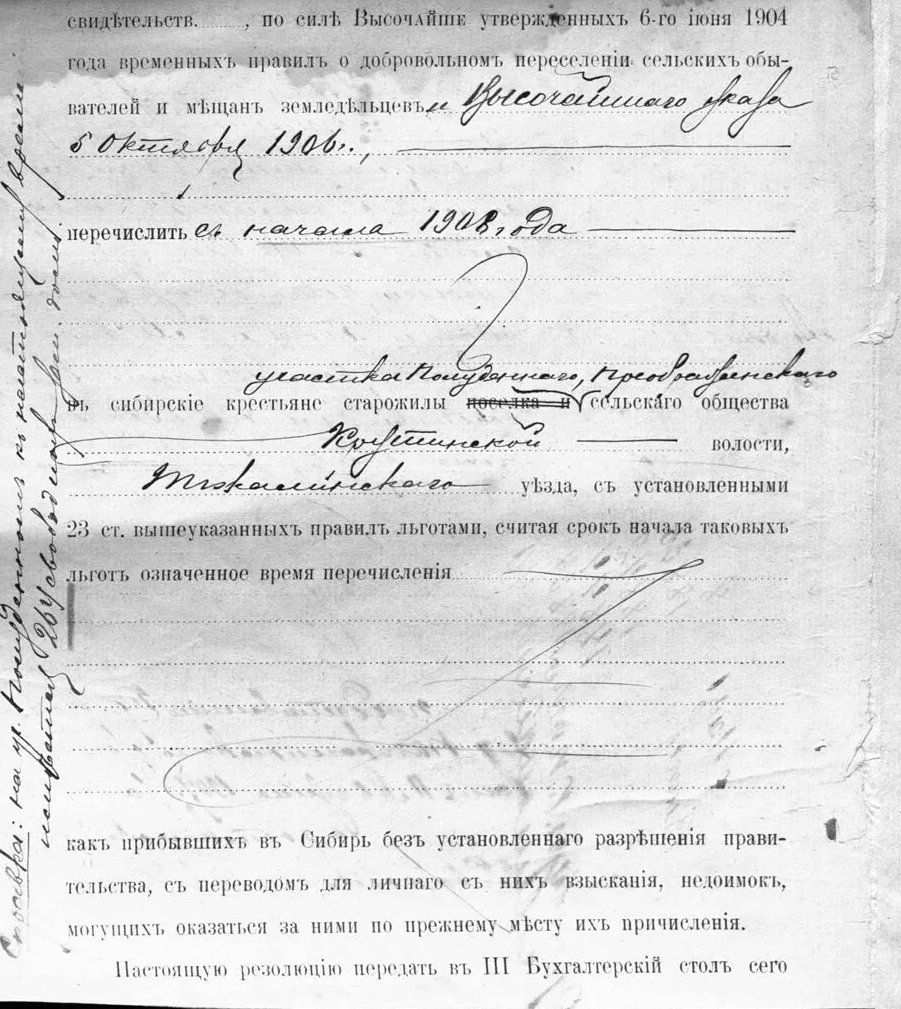 свидѣтельств........, по силѣ Высочайше утвержденныхъ 6-го іюня 1904
года временныхъ правилъ о добровольномъ переселеніи сельскихъ обы-
вателей и мѣщанъ земледѣльцевъ и Высочайшаго указа
5 Октября 1906 г.,
перечислить съ начала 1908 года
участка Полуденнаго, Преображенскаго
въ сибирскіе крестьяне старожилы поселка и сельскаго общества
Крутинской волости,
Тюкалинскаго уѣзда, съ установленными
23 ст. вышеуказанныхъ правилъ льготами, считая срокъ начала таковыхъ
льготъ означенное время перечисленія
какъ прибывшихъ въ Сибирь безъ установленнаго разрѣшенія прави-
тельства, съ переводомъ для личнаго съ нихъ взысканія, недоимокъ,
могущихъ оказаться за ними по прежнему мѣсту ихъ причисленія.
Настоящую резолюцію передать въ III Бухгалтерскій столъ сего
Справка: на уч. Полуденномъ къ настоящему времени
имѣется 26 свободныхъ душ. долей